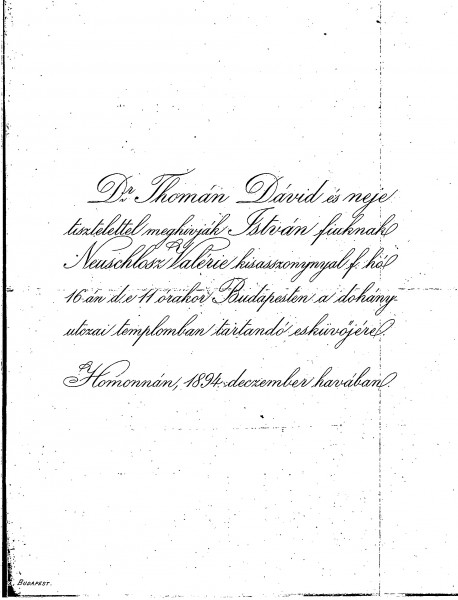 Dr. Thomán Dávid és neje
tisztelettel meghívják István fiuknak
Neuschlosz Valérie kisasszonynyal f. hó
16 án d. e 11 órakor Budapesten a dohány-
utczai templomban tartandó esküvőjére.
Homonnán, 1894. deczember havában.
BUDAPEST.